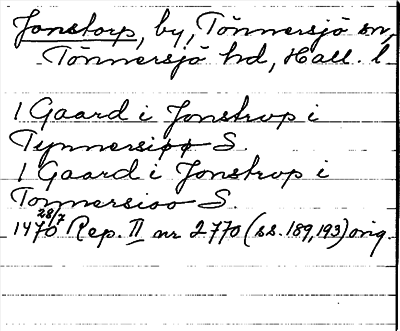 Jonstorp, by, Tönnersjö sn,
Tönnersjö hd, Hall. l
1 Gaard i Jonstrup i
Tynnersiøø S.
1 Gaard i Jonstrop i
Tonnersioo S.
1470 28/7 Rep. II nr 2770 (ss. 189, 193) orig.